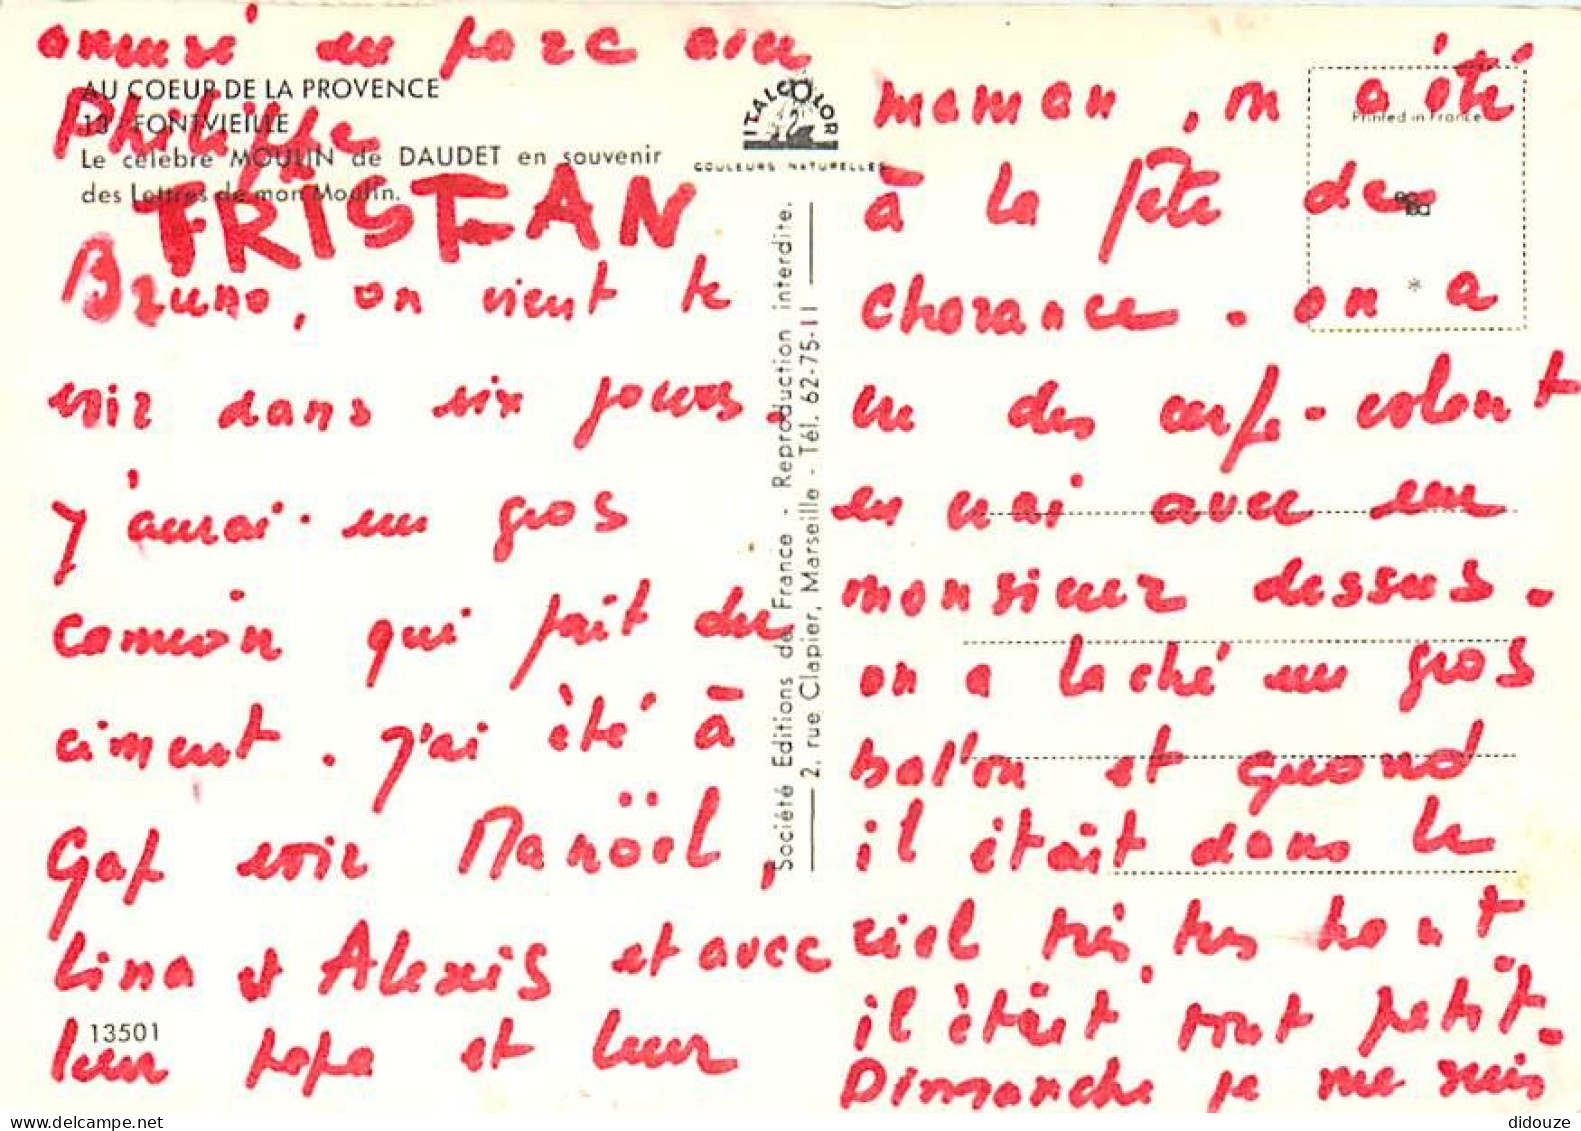 amusé au parc avec
Philippe
TRISTAN
AU COEUR DE LA PROVENCE
13 - FONTVIEILLE
Le célèbre MOULIN de DAUDET en souvenir
des Lettres de mon Moulin.
ITALCOLOR
COULEURS NATURELLES
Printed in France
Bruno, on vient te
voir dans six jours.
J'aurai un gros
camion qui fait du
ciment. J'ai été à
Gap voir Manoël,
Lina et Alexis et avec
leur papa et leur
13501
Société Editions de France - Reproduction interdite.
2, rue Clapier, Marseille - Tél. 62-75-11
maman, on a été
à la fête de
charance. on a
vu des cerf-volant
en vrai avec un
monsieur dessus.
on a laché un gros
bal'on et quand
il était dans le
ciel très, très haut
il était tout petit.
Dimanche je me suis
didouze